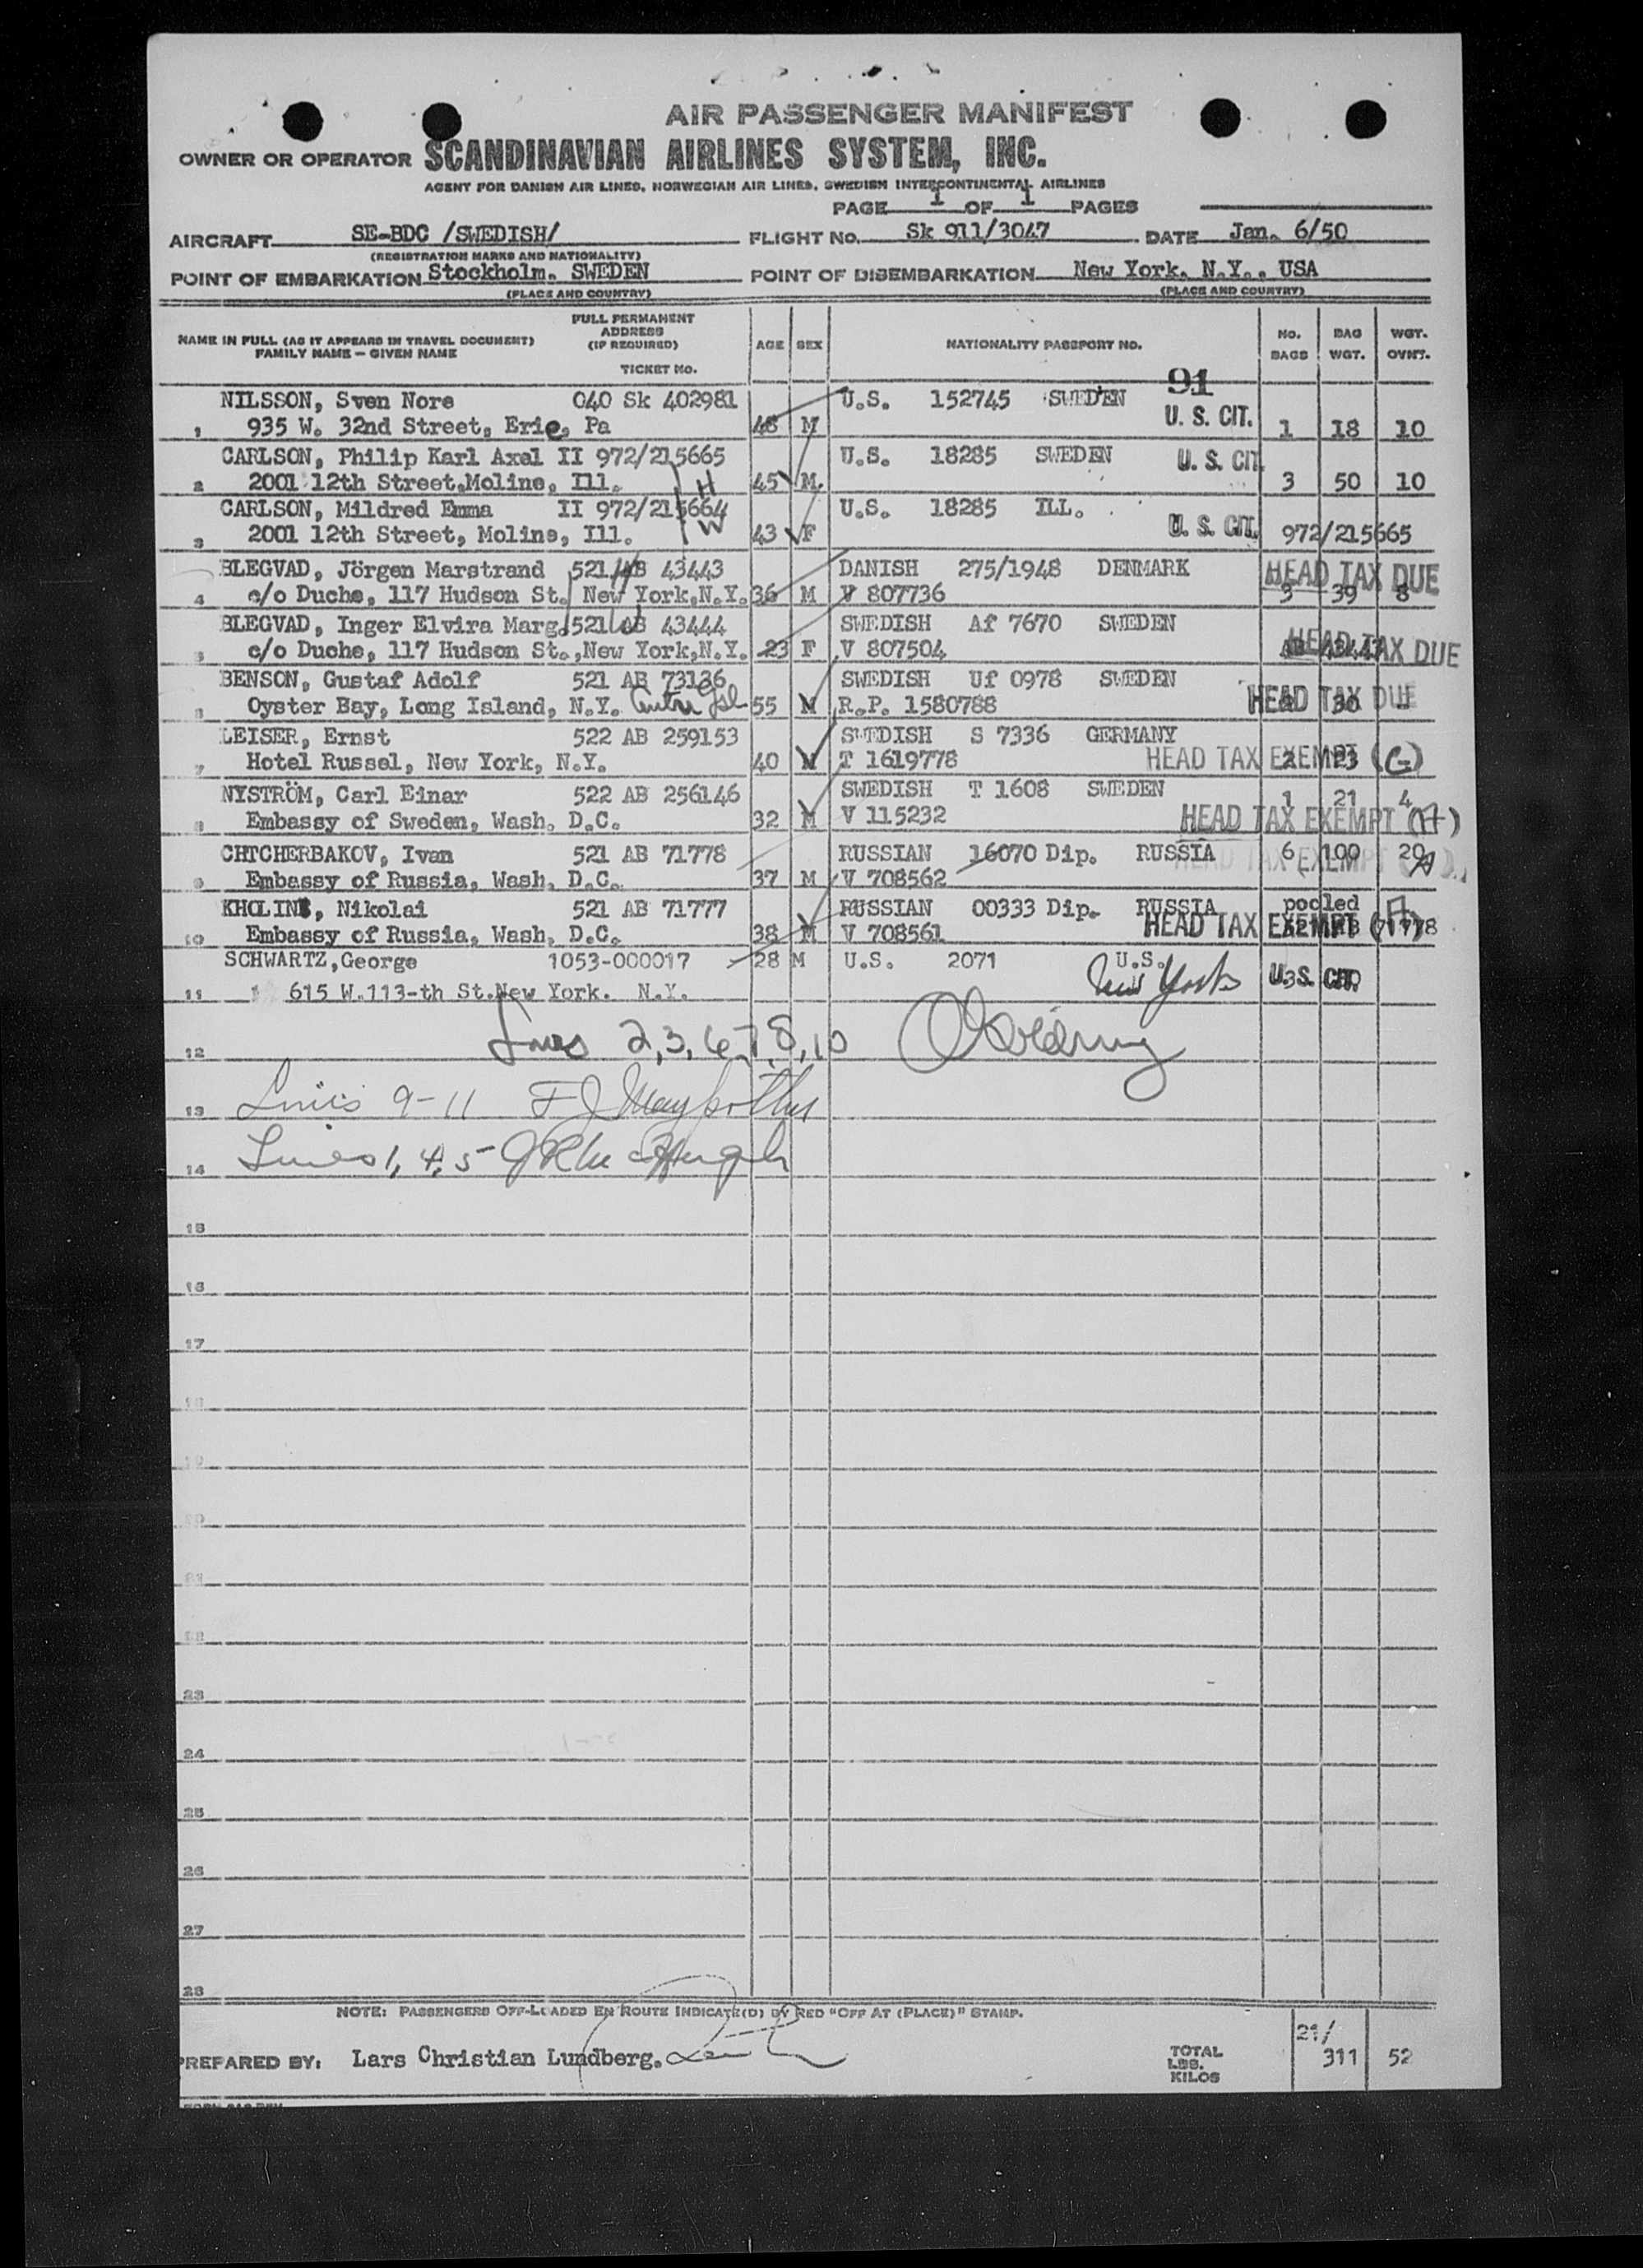 AIR PASSENGER MANIFEST
OWNER OR OPERATOR SCANDINAVIAN AIRLINES SYSTEM, INC.
AGENT FOR DANISH AIR LINES, NORWEGIAN AIR LINES, SWEDISH INTERCONTINENTAL AIRLINES
PAGE 1 OF 1 PAGES
AIRCRAFT SE-BDC /SWEDISH/ FLIGHT No. Sk 911/3047 DATE Jan. 6/50
(REGISTRATION MARKS AND NATIONALITY)
POINT OF EMBARKATION Stockholm. SWEDEN POINT OF DISEMBARKATION New York. N.Y., USA
(PLACE AND COUNTRY) (PLACE AND COUNTRY)
NAME IN FULL (AS IT APPEARS IN TRAVEL DOCUMENT) FAMILY NAME – GIVEN NAME
FULL PERMANENT ADDRESS (IF REQUIRED) TICKET No.
AGE SEX NATIONALITY PASSPORT NO. NO. BAGS BAG WGT. WGT. OVWT.
91
NILSSON, Sven Nore 040 Sk 402981 U.S. 152745 SWEDEN
1 935 W. 32nd Street, Erie, Pa 48 M U. S. CIT. 1 18 10
CARLSON, Philip Karl Axel II 972/215665 U.S. 18285 SWEDEN U. S. CIT.
2 2001 12th Street,Moline, Ill. H 45 M. 3 50 10
CARLSON, Mildred Emma II 972/215664 U.S. 18285 ILL.
3 2001 12th Street, Moline, Ill. W 43 F U. S. CIT. 972/215665
BLEGVAD, Jörgen Marstrand 521 AB 43443 DANISH 275/1948 DENMARK HEAD TAX DUE
4 c/o Duche, 117 Hudson St. New York,N.Y. 36 M V 807736 3 39 8
BLEGVAD, Inger Elvira Marg. 521 AB 43444 SWEDISH Af 7670 SWEDEN
5 c/o Duche, 117 Hudson St.,New York,N.Y. 23 F V 807504 HEAD TAX DUE
BENSON, Gustaf Adolf 521 AB 73136 SWEDISH Uf 0978 SWEDEN
6 Oyster Bay, Long Island, N.Y. 55 M R.P. 1580788 HEAD TAX DUE 30
LEISER, Ernst 522 AB 259153 SWEDISH S 7336 GERMANY
7 Hotel Russel, New York, N.Y. 40 M T 1619778 HEAD TAX EXEMPT (G) 2 23
NYSTRÖM, Carl Einar 522 AB 256146 SWEDISH T 1608 SWEDEN 1 21 4
8 Embassy of Sweden, Wash. D.C. 32 M V 115232 HEAD TAX EXEMPT (A)
CHTCHERBAKOV, Ivan 521 AB 71778 RUSSIAN 16070 Dip. RUSSIA 6 100 20
9 Embassy of Russia, Wash. D.C. 37 M V 708562 HEAD TAX EXEMPT A
KHOLIN, Nikolai 521 AB 71777 RUSSIAN 00333 Dip. RUSSIA pooled
10 Embassy of Russia, Wash. D.C. 38 M V 708561 HEAD TAX EXEMPT 521 AB 71778
SCHWARTZ,George 1053-000017 28 M U.S. 2071 U.S.
11 615 W.113-th St.New York. N.Y. New York U.S. CIT.
12 Lines 2,3,6,7,8,10
13 Lines 9-11
14 Lines 1,4,5
15
16
17
18
19
20
21
22
23
24
25
26
27
28
NOTE: PASSENGERS OFF-LOADED EN ROUTE INDICATE(D) BY RED "OFF AT (PLACE)" STAMP.
PREPARED BY: Lars Christian Lundberg. TOTAL LBS. KILOS 21/ 311 52